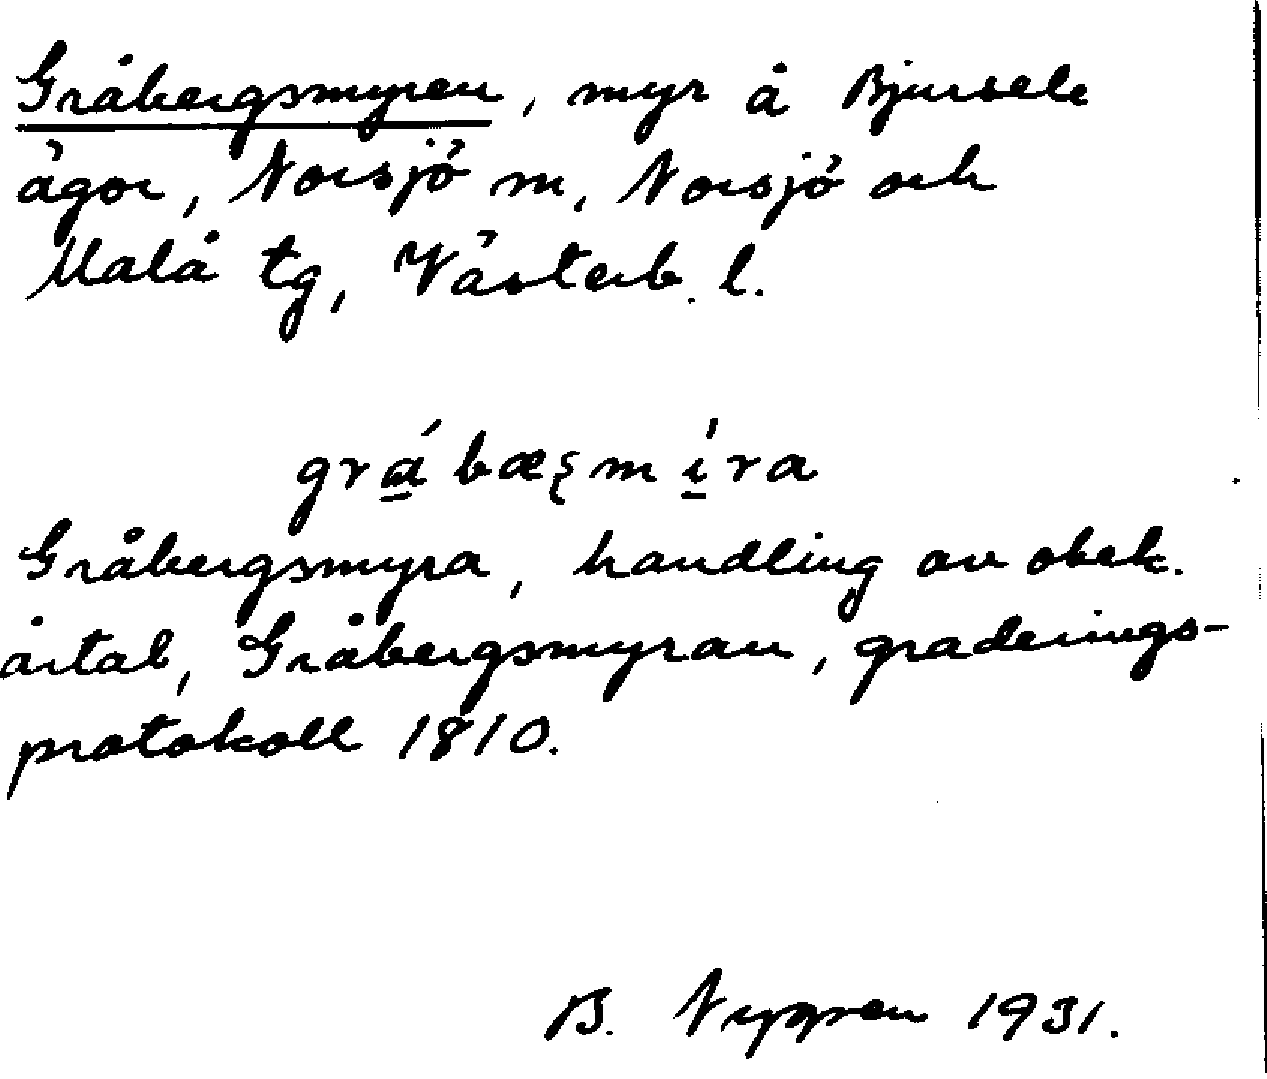 Gråbergsmyren, myr å Bjursele
ägor, Norsjö sn, Norsjö och
Malå tg, Västerb. l.
grá̲bæʂmí̲ra
Gråbergsmyra, handling av obek.
årtal, Gråbergsmyran, graderings-
protokoll 1810.
B. Nygren 1931.